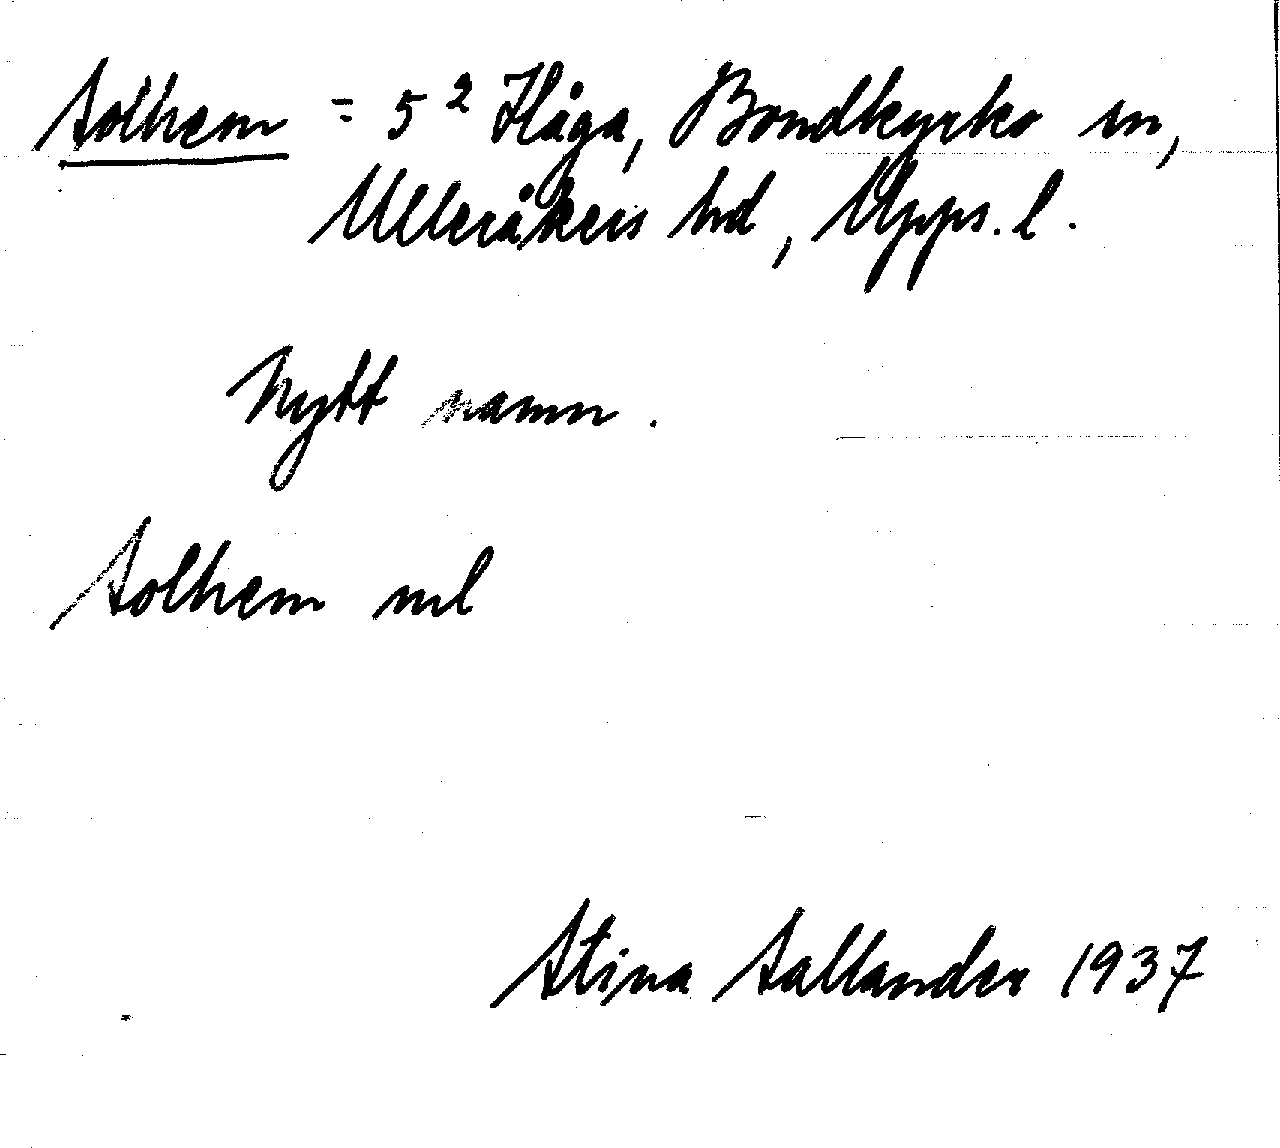 Solhem = 5² Håga, Bondkyrko sn,
Ulleråkers hd, Upps. l.
Nytt namn.
Solhem ml
Stina Sallander 1937